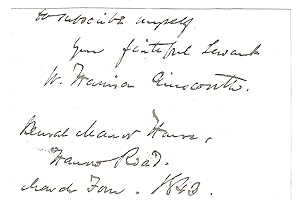 to subscribe myself
your faithful Servant
W. Harrison Ainsworth.
Kensal Manor House,
Harrow Road.
March Four. 1843.